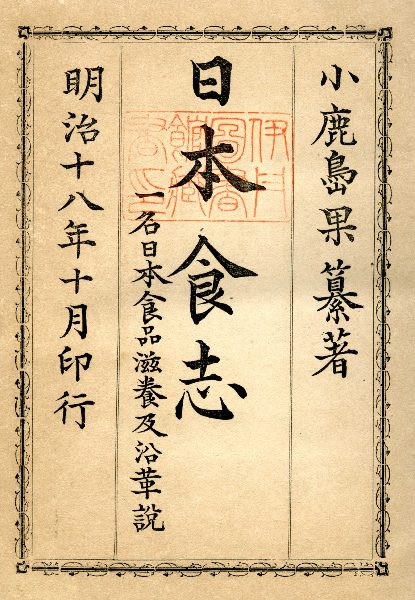 小鹿島果纂著
日本食志
一名日本食品滋養及沿革說
明治十八年十月印行